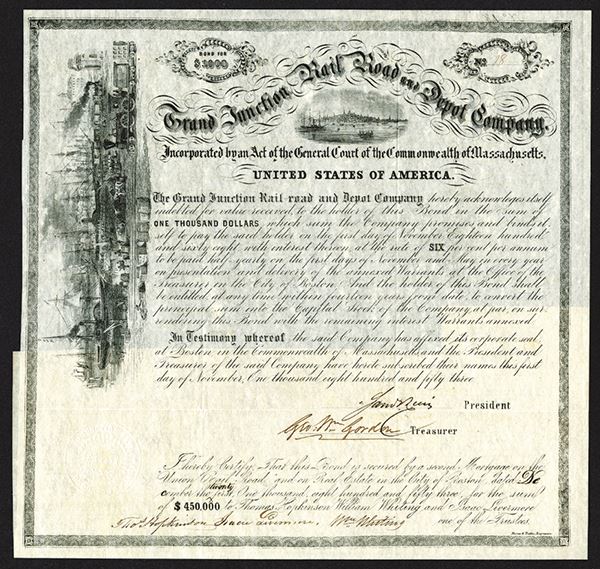 BOND FOR
$1000
No 18
Grand Junction Rail Road and Depot Company.
Incorporated by an Act of the General Court of the Commonwealth of Massachusetts,
UNITED STATES OF AMERICA.
The Grand Junction Rail-road and Depot Company hereby acknowleges itself
indebted for value received, to the holder of this Bond in the sum of
ONE THOUSAND DOLLARS which sum the Company promises and binds it
self to pay the said holder on the first day of November Eighteen hundred
and sixty eight, with interest thereon, at the rate of SIX per cent per annum
to be paid half-yearly on the first days of November and May in every year
on presentation and delivery of the annexed Warrants at the Office of the
Treasurer in the City of Boston. And the holder of this Bond Shall
be entitled, at any time within fourteen years from date, to convert the
principal sum into the Capital Stock of the Company at par, on sur-
rending this Bond with the remaining interest Warrants annexed.
In Testimony whereof the said Company has affixed its corporate seal
at Boston in the Commonwealth of Massachusetts, and the President and
Treasurer of the said Company have hereto subscribed their names this first
day of November, One thousand eight hundred and fifty three
President
Geo. Wm Gordon Treasurer
I hereby Certify, That this Bond is secured by a second Mortgage on the
Union Road, and on Real Estate in the City of Boston, dated De
cember the twenty first, One thousand, eight hundred and fifty three, for the sum
of $450,000 to Thomas Hopkinson William Whiting and Isaac Livermore
Thos Hopkinson Isaac Livermore, Wm Whiting one of the Trustees.